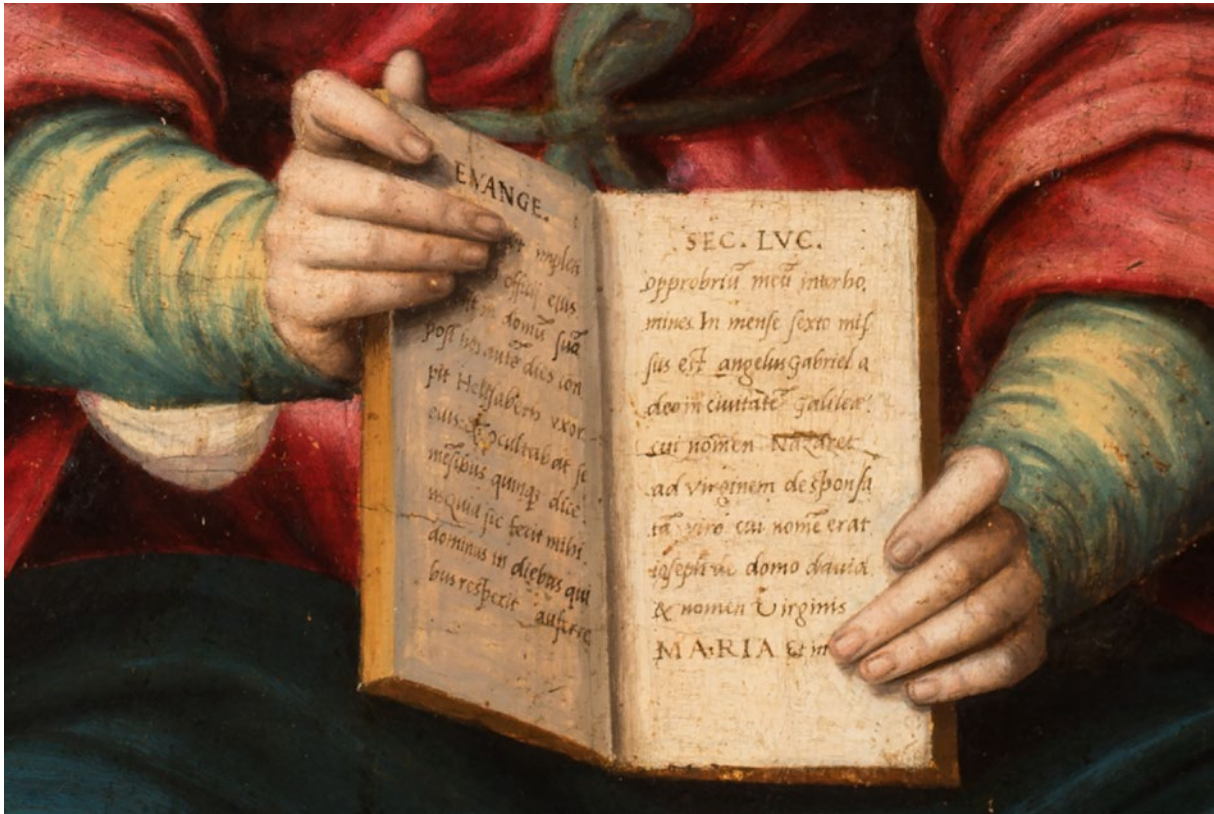 EVANGE.
implea
officij eius
in domū suā
post hos autē dies con
pit Helisabeth vxor
eius & ocultabat se
mēsibus quinq; dice
quia sic fecit mihi
dominus in diebus qui
bus respexit auferre
SEC. LVC.
opprobriū meū interho
mines. In mense sexto mis
sus est angelus Gabriel a
deo in ciuitatē Galileæ
cui nomen Nazaret
ad virginem desponsa
tā viro cui nomē erat
ioseph de domo dauid
& nomen Virginis
MARIA Et in